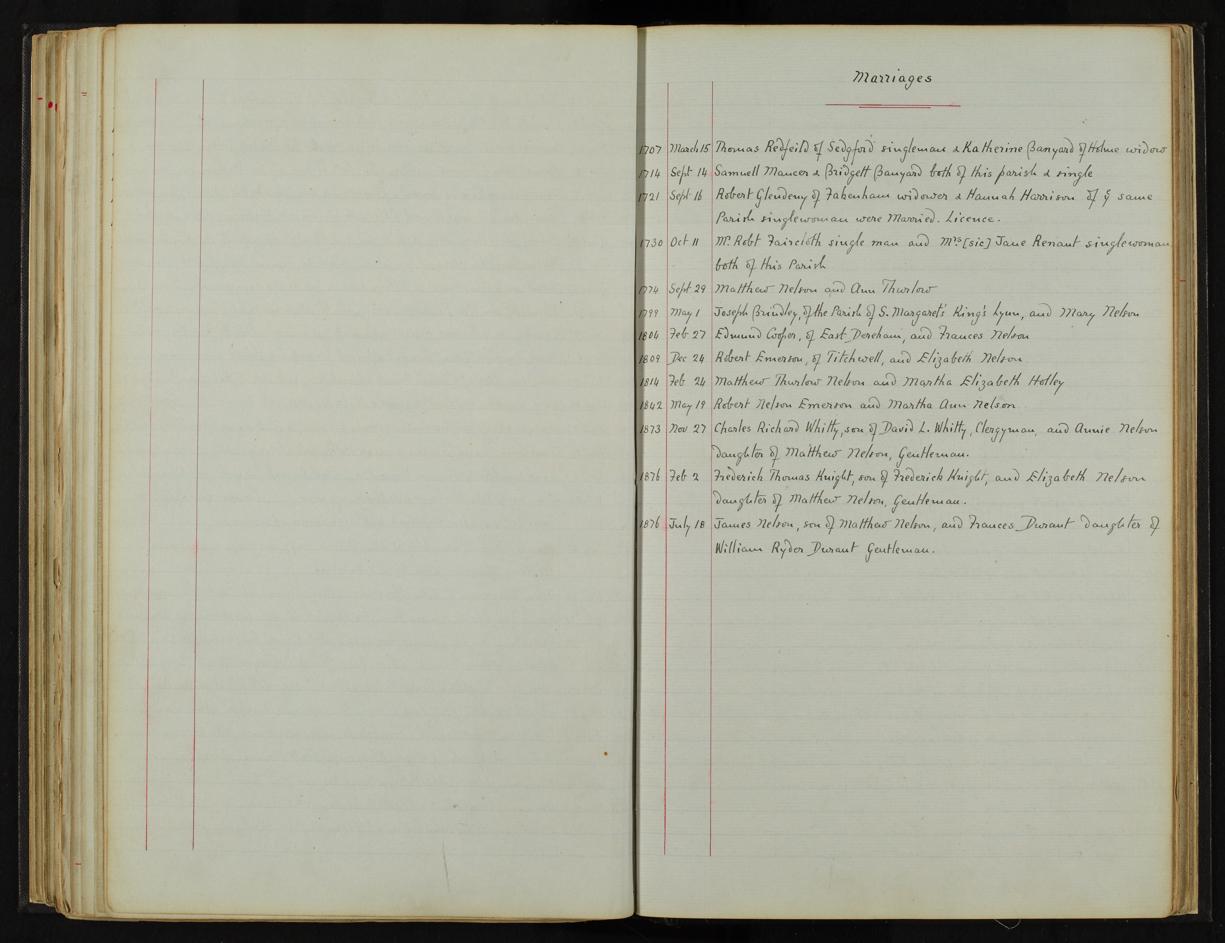 Marriages
1707 March 15 Thomas Redfeild of Sedgford singleman & Katherine Banyard of Holme widow
1714 Sept 14 Samuell Mancer & Bridgett Banyard both of this parish & single
1721 Sept 16 Robert Glendeny of Fakenham widower & Hannah Harrison of ye same
Parish singlewoman were Married. Licence.
1730 Oct 11 Mr. Robt Faircloth single man and Mrs [sic] Jane Renant singlewoman
both of this Parish
1774 Sept 29 Matthew Nelson and Ann Thurlow
1799 May 1 Joseph Brindley, of the Parish of S. Margaret's King's Lynn, and Mary Nelson
1804 Feb 27 Edmund Cooper, of East Dereham, and Frances Nelson
1809 Dec 24 Robert Emerson, of Titchwell, and Elizabeth Nelson
1814 Feb 24 Matthew Thurlow Nelson and Martha Elizabeth Holley
1842 May 19 Robert Nelson Emerson and Martha Ann Nelson
1873 Nov 27 Charles Richard Whitty, son of David L. Whitty, Clergyman, and Annie Nelson
daughter of Matthew Nelson, Gentleman.
1876 Feb 2 Frederick Thomas Knight, son of Frederick Knight, and Elizabeth Nelson
daughter of Matthew Nelson, Gentleman.
1876 July 18 James Nelson, son of Matthew Nelson, and Frances Durant daughter of
William Ryder Durant Gentleman.